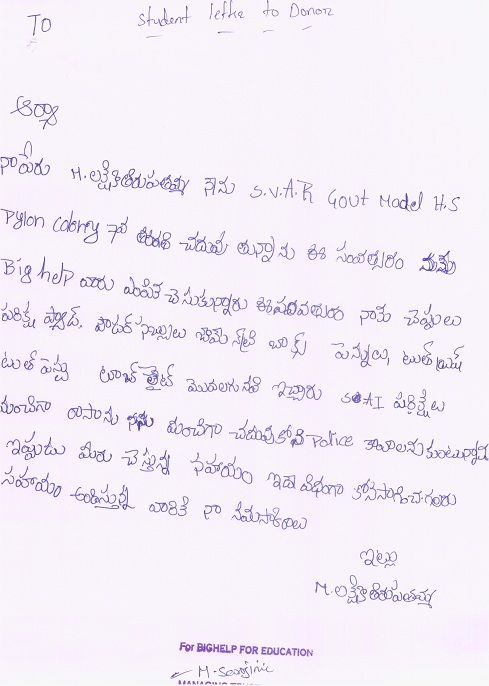 TO
Student letter to Donor
ఆర్యా
నా పేరు M. లక్ష్మీ తిరుపతమ్మ నేను S.V.A.R Govt Model H.S
Pylon colony 7వ తరగతి చదువు తున్నాను ఈ సంవత్సరం నన్ను
Big help వారు ఎంపిక చేసుకున్నారు ఈ నాకు చెప్పులు
పరీక్ష ప్యాడ్, పౌడర్ సబ్బులు బాక్స్ పెన్నులు, టుత్ బ్రష్
టుత్ పేస్టు లైట్ మొదలగునవి ఇచ్చారు SAI పరీక్షలు
మంచిగా రాసాను నేను మంచిగా చదువుకోని Police కావాలనుకుంటున్నాను
ఇప్పుడు మీరు చేస్తున్న సహాయం ఇదే విధంగా కోనసాగించగలరు
సహాయం అందిస్తున్న వారికి నా నమస్కారాలు
ఇట్లు
M. లక్ష్మీ తిరుపతమ్మ
For BIGHELP FOR EDUCATION